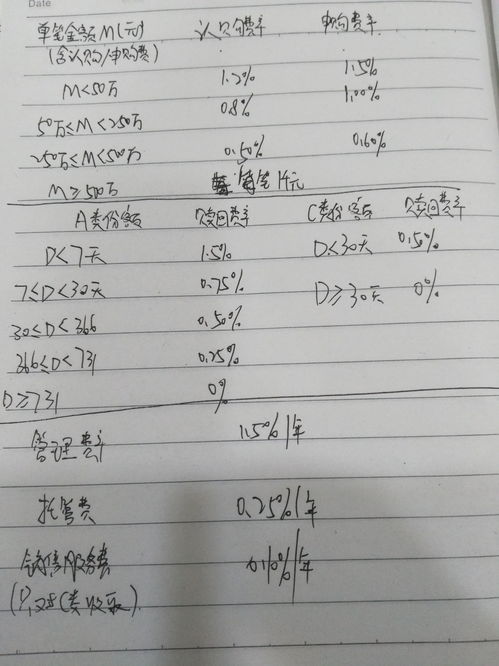 Date
单笔金额M(元) 认购费率 申购费率
(含认购/申购费)
M<50万 1.2% 1.5%
50万≤M<250万 0.8% 1.00%
250万≤M<500万 0.50% 0.60%
M≥500万 每笔1千元
A类份额 赎回费率 C类份额 赎回费率
D<7天 1.5% D<30天 0.50%
7≤D<30天 0.75% D≥30天 0%
30≤D<366 0.50%
366≤D<731 0.25%
D≥731 0%
管理费率 1.5%/年
托管费 0.25%/年
销售服务费 0.10%/年
C类收取)